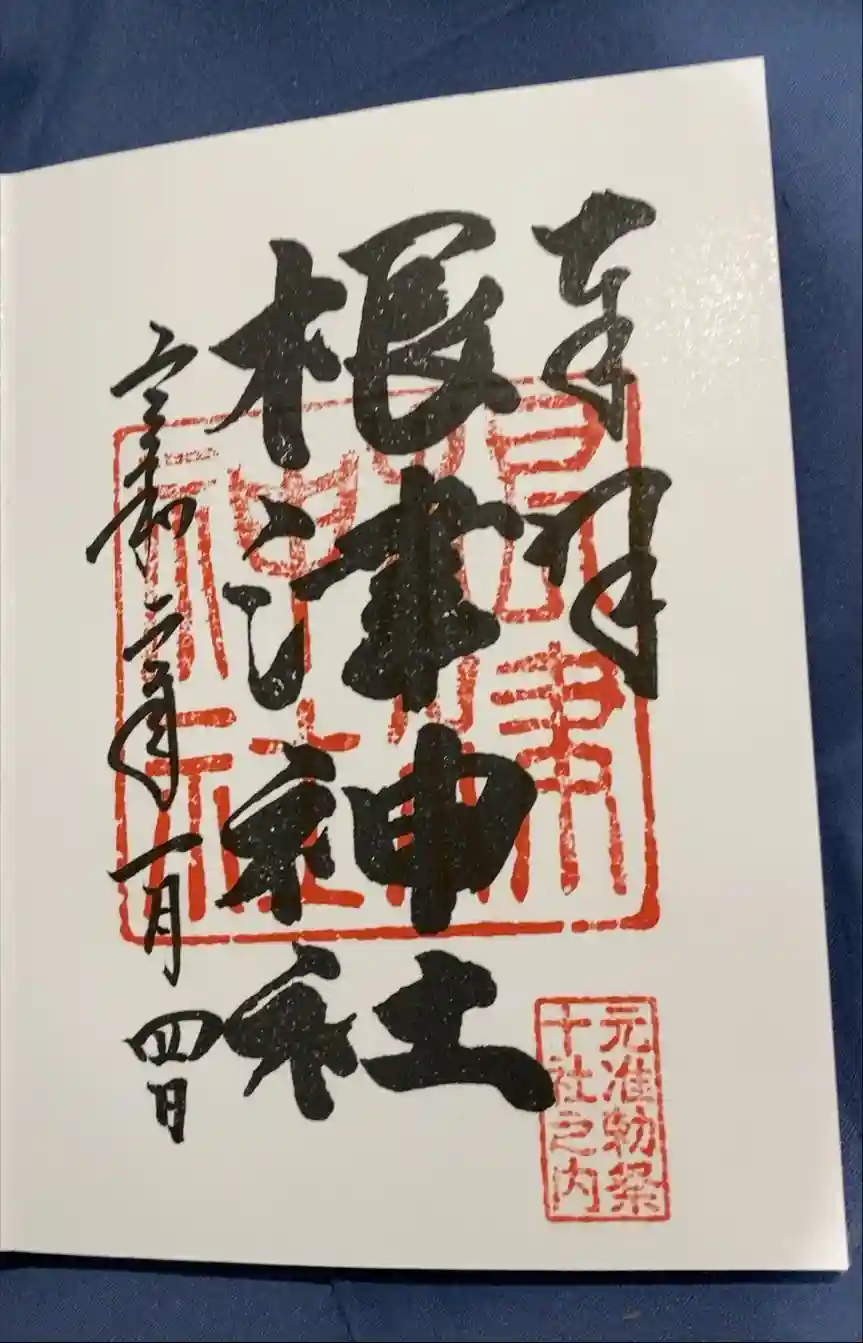 奉拝
根津神社
令和 年一月四日
根津
神社
元准勅祭
十社之内